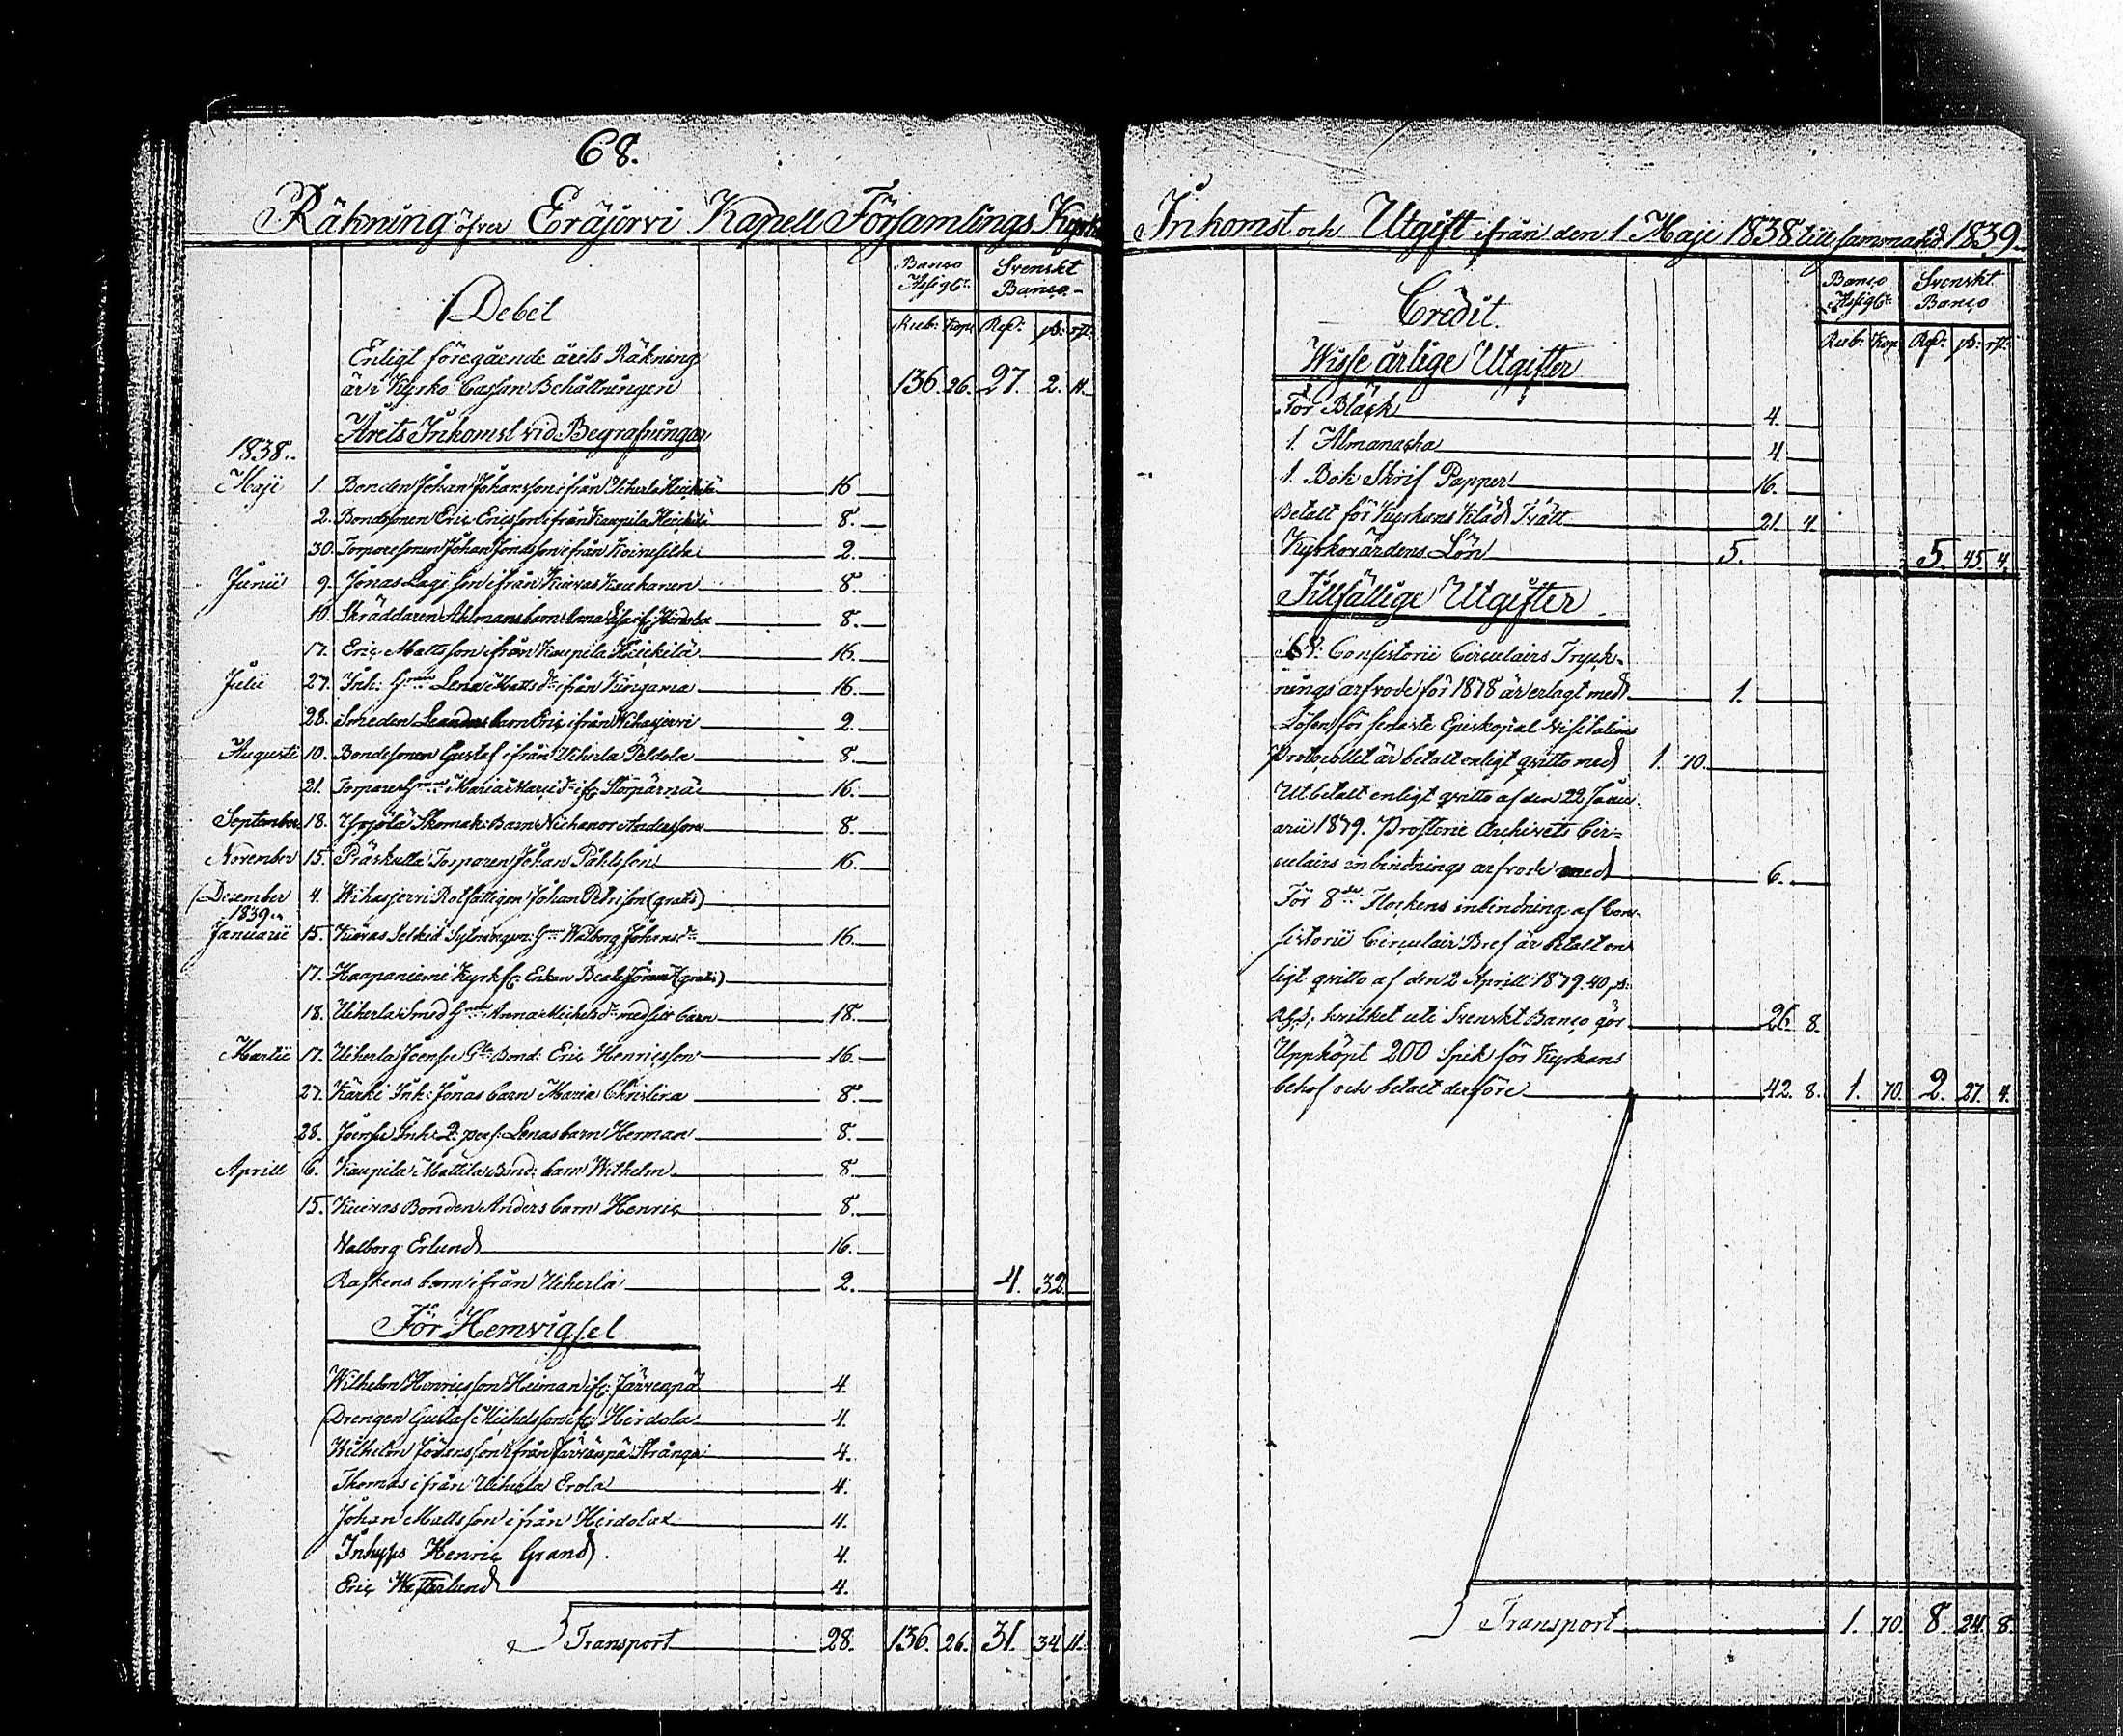 68.
Räkning öfver Eräjervi Kapell Församlings Kyrko
Debet
Banco Assigt:
Svenskt Banco
Rub: Kop: Rdr: sk: rst:
Enligt föregående årets Räkning
är i Kyrko Cassan Behållningen 136. 26. 27. 2. 11.
Årets Inkomst vid Begrafningar
1838.
Maji 1. Bonden Johan Johansson ifrån Uiherla Heickilä 16
2. Bondsonen Eric Ericsson ifrån Kaupila Heickilä 8.
30. Torparesonen Johan ifrån 2.
Junii 9. Jonas son ifrån Kuivas Kauhanen 8.
10. Skräddaren Ahlmans barn Hirdola 8.
17. Eric Mattsson ifrån Kaupila Heickilä 16.
Julii 27. Inh: Lena Matts dr ifrån Kingama 16.
28. Smeden Leanders barn Eric ifrån Wihasjervi 2.
Augusti 10. Bondesonen Gustaf ifrån Uiherla Peldola 8.
21. Maria 16.
September 18. Yrjölä Skomak: Barn Nichanor Andersson 8.
November 15. Präskulla Torparen Johan Påhlsson 16.
December 4. Wihasjervi Rotfattigen Johan Petrison (gratis)
1839.
Januarii 15. Kuivas Walborg Johans dr 16.
17. Haapaniemi Kyrk Enkan Beata (gratis)
18. Uiherla Smed Anna Michels dr med sitt barn 18.
Martii 17. Uiherla Joense Bond: Eric Henricsson 16.
27. Kärki Inh: Jonas barn Maria Christina 8.
28. Joense Inh: Lenas barn Herman 8.
Aprill 6. Kaupila Mattila Bond: barn Wilhelm 8.
15. Kuivas Bonden Anders barn Henric 8.
Walborg Erlund 16.
Raskens barn ifrån Uiherla 2. 4. 32.
För Hemvigsel
Wilhelm Henricsson Heiman if: Järvenpä 4.
Drengen Gustaf Michelsson if: Hirdola 4.
Wilhelm Göransson ifrån Järvänpä Strånga 4.
Thomas ifrån Uiherla Erola 4.
Johan Mattsson ifrån Hirdola 4.
Inhyses Henric Grand. 4.
Eric Westerlund 4.
Transport 28. 136. 26. 31. 34. 11.
Inkomst och Utgift ifrån den 1 Maji 1838 till samma tid 1839.
Credit.
Banco Assigt:
Svenskt Banco
Rub: Kop: Rdr: sk: rst:
Wisse årlige Utgifter
För Bläck 4.
1. Almanacka 4
1. Bok Skrif Papper 16.
Betalt för Kyrkans Kläd Tvätt 21 4.
Kyrkovärdens Lön 5. 5. 45. 4.
Tillfällige Utgifter
Consistorii Circulairs Tryck-
nings arfvode för 1838 är erlagt med 1.
Lösen för senaste Episkopal Visitations
Protocollet är betalt enligt qvitto med 1. 70.
Utbetalt enligt qvitto af den 22 Janu-
arii 1839. Prosterie Archivets Cir-
culairs inbindnings arfvode med 6.
För 8de Flockens inbindning af Con-
sistorii Circulair Bref är betalt en-
ligt qvitto af den 2 Aprill 1839. 40
hvilket uti Svenskt Banco gör 26. 8.
Uppköpt 200 Spik för Kyrkans
behof och betalt derföre 42. 8. 1. 70. 2. 27. 4.
Transport 1. 70. 8. 24. 8.